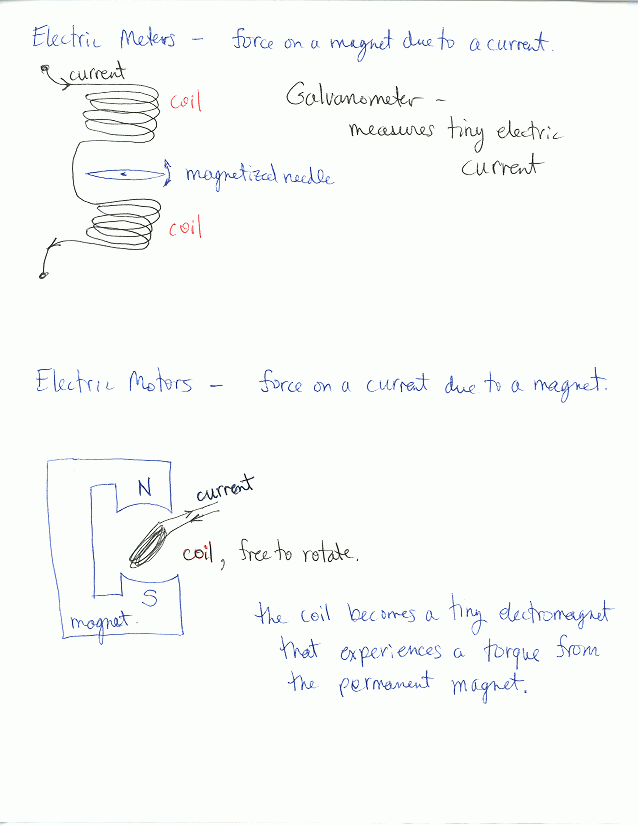 Electric Meters - force on a magnet due to a current.
current
coil
Galvanometer -
measures tiny electric
current
magnetized needle
coil
Electric Motors - force on a current due to a magnet.
N
current
coil, free to rotate.
S
magnet.
the coil becomes a tiny electromagnet
that experiences a torque from
the permanent magnet.